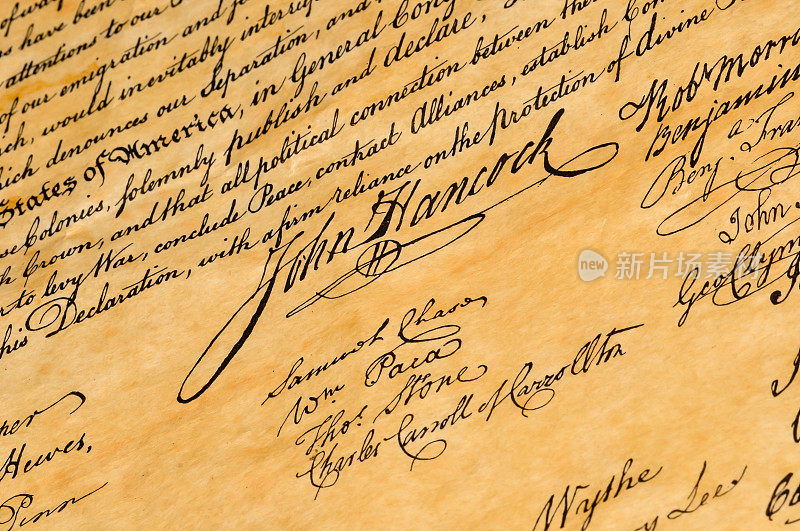 of our emigration and
attentions to our
have been
would inevitably interrupt
which denounces our Separation, and
States of America, in General Cong
Colonies, solemnly publish and declare,
Crown, and that all political connection between the
to levy War, conclude Peace, contract Alliances, establish Com
his Declaration, with a firm reliance on the Protection of divine
John Hancock
Samuel Chase
Wm Paca
Thos. Stone
Charles Carroll of Carrollton
Hewes,
Penn
Robt Morri
Benjamin
Benj. Fra
John
Geo Clym
Wythe
Lee
new 新片场素材